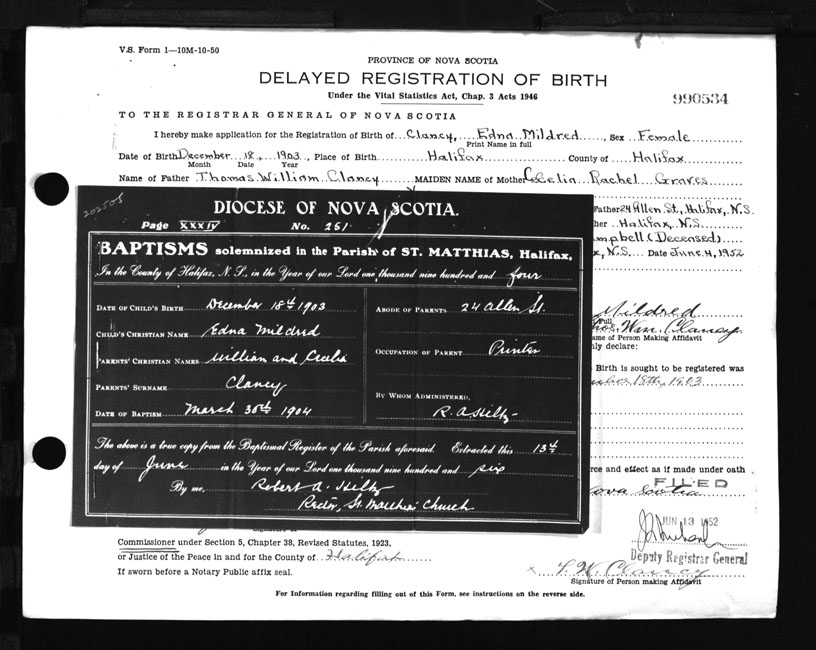 V.S. Form 1—10M-10-50
PROVINCE OF NOVA SCOTIA
DELAYED REGISTRATION OF BIRTH
Under the Vital Statistics Act, Chap. 3 Acts 1946
990534
TO THE REGISTRAR GENERAL OF NOVA SCOTIA
I hereby make application for the Registration of Birth of Clancy, Edna Mildred, Sex Female
Print Name in full
Date of Birth December 18, 1903, Place of Birth Halifax County of Halifax
Month Date Year
Name of Father Thomas William Clancy MAIDEN NAME of Mother Cecelia Rachel Graves
Father 24 Allen St., Halifax, N.S.
her Halifax, N.S.
mpbell (Deceased)
x, N.S. Date June 4, 1952
202505
DIOCESE OF NOVA SCOTIA.
Page XXXIV No. 251
BAPTISMS solemnized in the Parish of ST. MATTHIAS, Halifax,
In the County of Halifax, N. S., in the Year of our Lord one thousand nine hundred and four
DATE OF CHILD'S BIRTH December 18th 1903
CHILD'S CHRISTIAN NAME Edna Mildred
PARENTS' CHRISTIAN NAMES William and Cecelia
PARENTS' SURNAME Clancy
DATE OF BAPTISM March 30th 1904
ABODE OF PARENTS 24 Allen St.
OCCUPATION OF PARENT Printer
BY WHOM ADMINISTERED,
R. A. Hiltz
The above is a true copy from the Baptismal Register of the Parish aforesaid. Extracted this 13th
day of June in the Year of our Lord one thousand nine hundred and six
By me, Robert A. Hiltz
Rector, St. Matthias Church
Mildred
Full
hos. Wm. Clancy
ame of Person Making Affidavit
nly declare:
Birth is sought to be registered was
mber 18th, 1903
rce and effect as if made under oath
ova Scotia
FILED
JUN 13 1952
Deputy Registrar General
Commissioner under Section 5, Chapter 38, Revised Statutes, 1923,
or Justice of the Peace in and for the County of Halifax
If sworn before a Notary Public affix seal.
x T. W. Clancy
Signature of Person making Affidavit
For Information regarding filling out of this Form, see instructions on the reverse side.